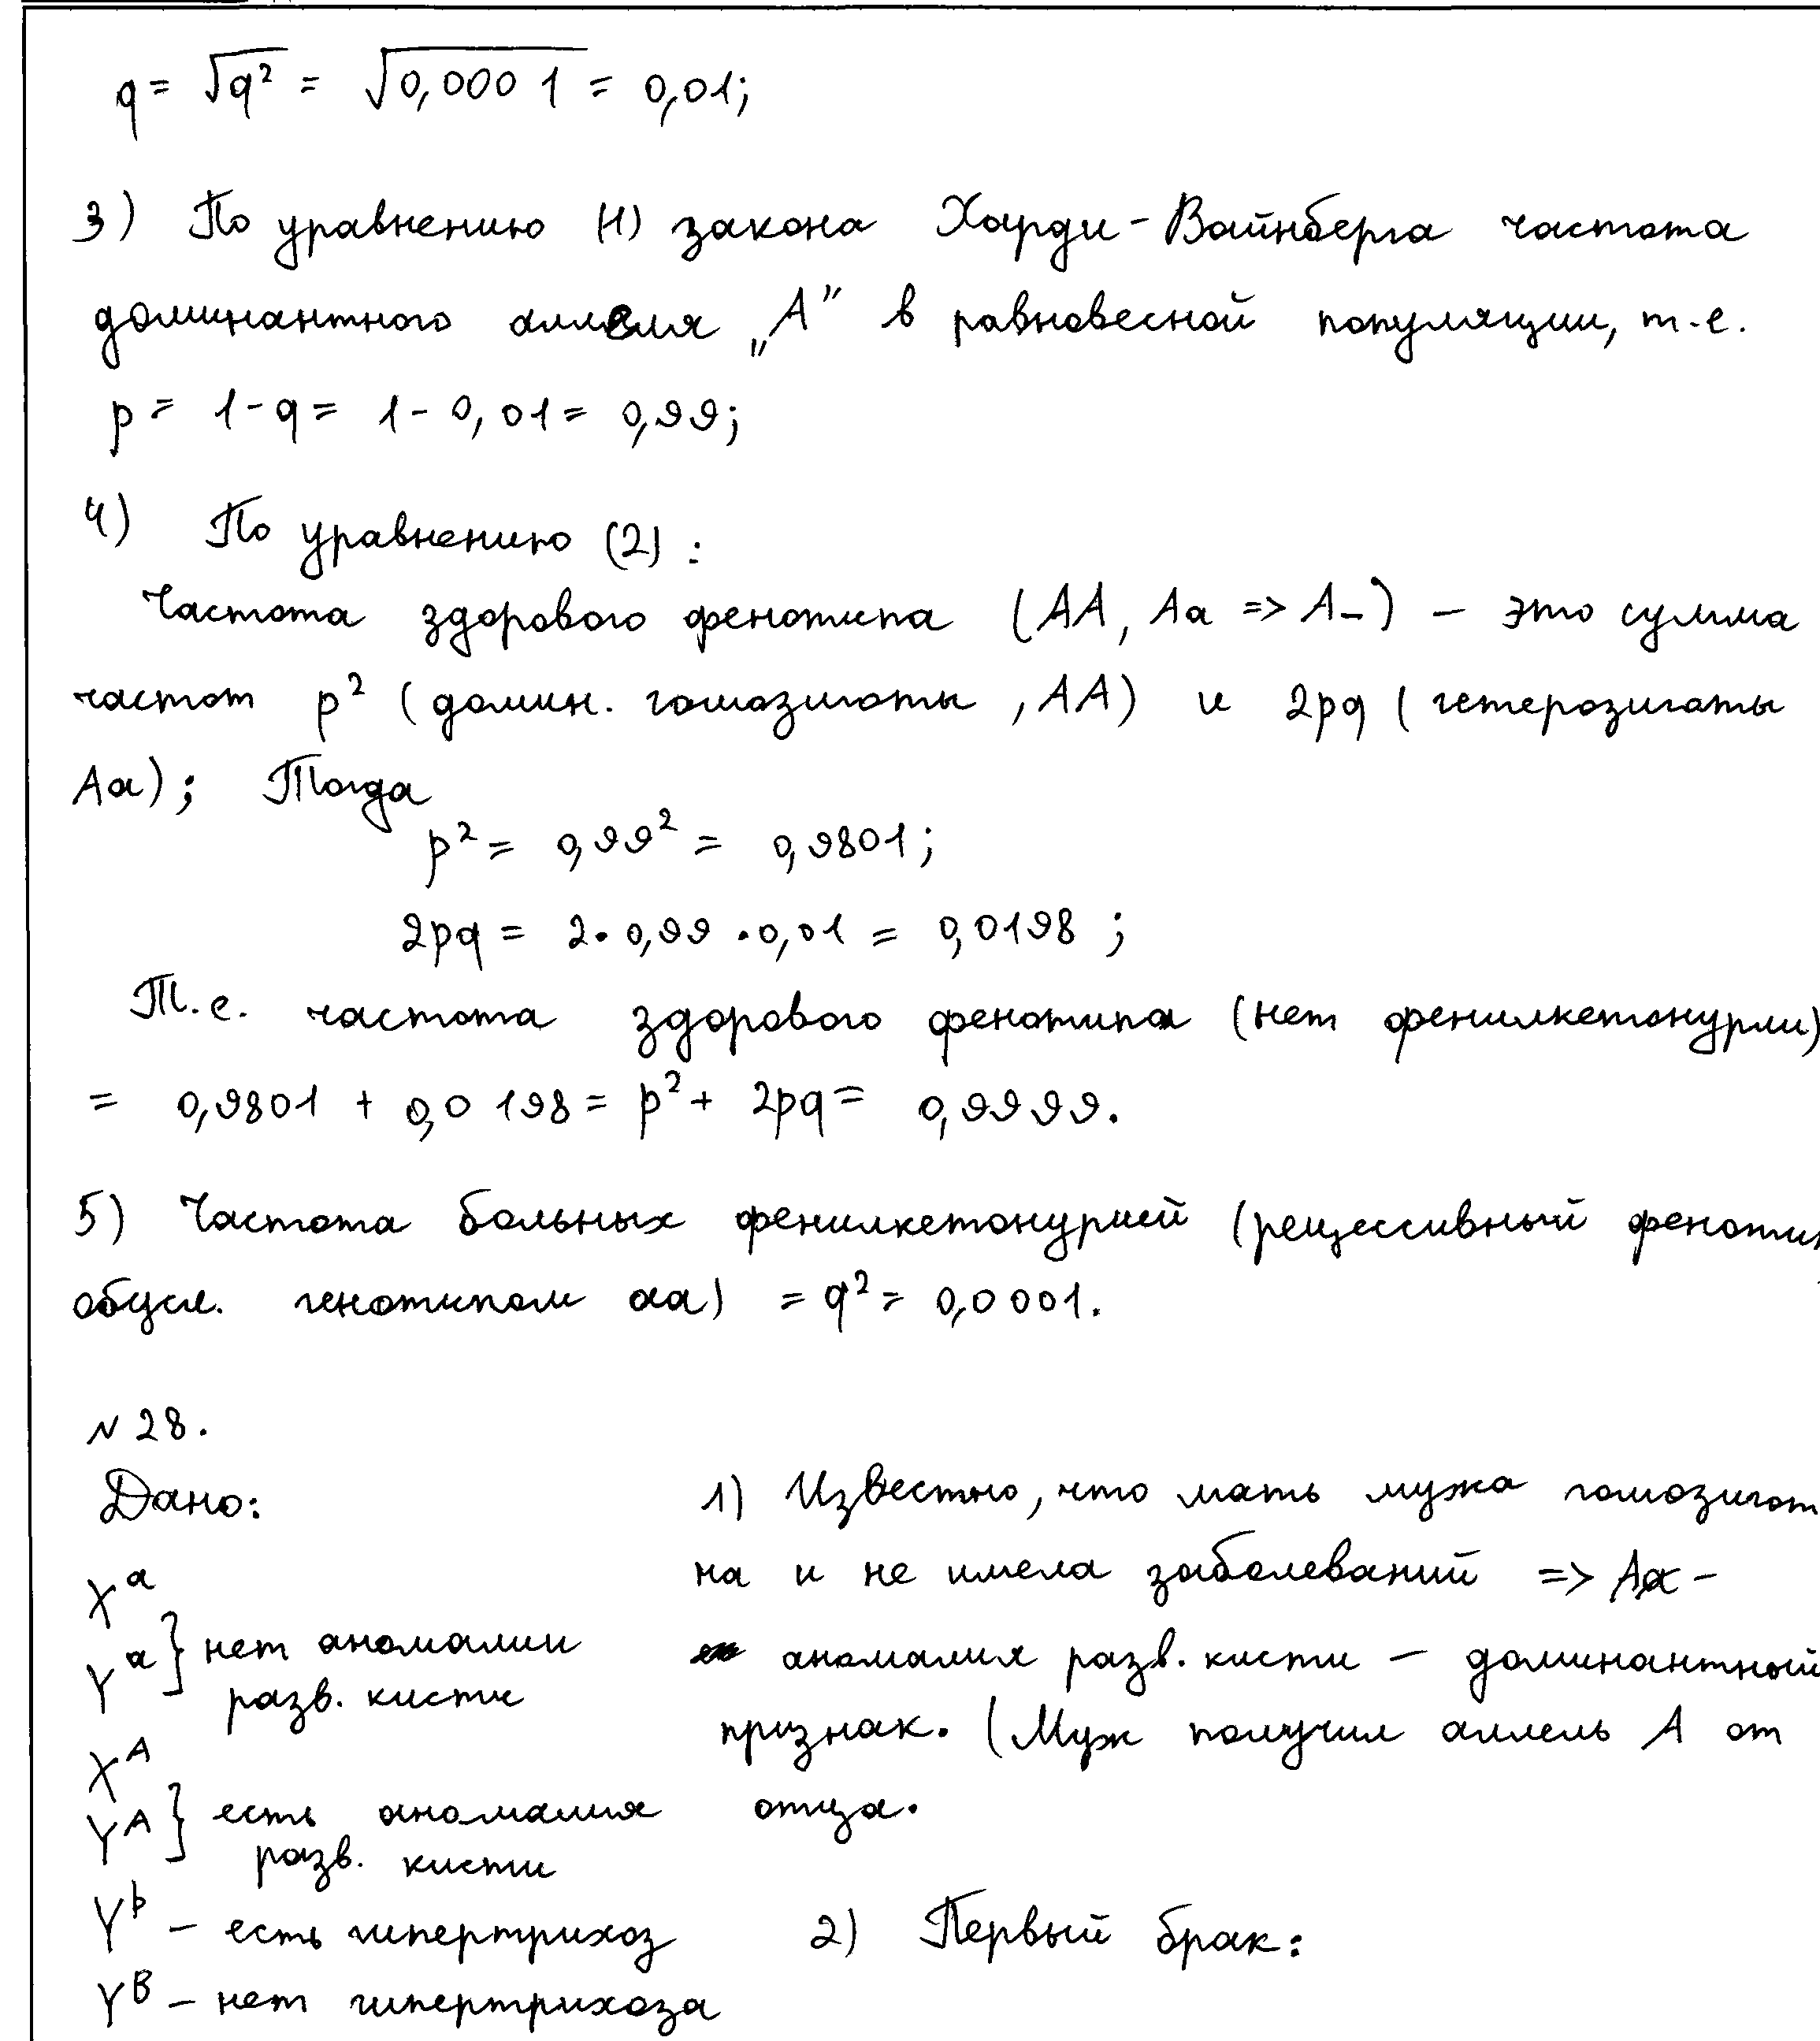 q = √q² = √0,0001 = 0,01;
3) По уравнению (1) закона Харди-Вайнберга частота
доминантного аллеля „A” в равновесной популяции, т.е.
p = 1 - q = 1 - 0,01 = 0,99;
4) По уравнению (2):
Частота здорового фенотипа (AA, Aa => A_) – это сумма
частот p² (домин. гомозиготы, AA) и 2pq (гетерозиготы
Aa); Тогда
p² = 0,99² = 0,9801;
2pq = 2·0,99·0,01 = 0,0198;
Т.е. частота здорового фенотипа (нет фенилкетонурии)
= 0,9801 + 0,0198 = p² + 2pq = 0,9999.
5) Частота больных фенилкетонурией (рецессивный фенотип
обусл. генотипом aa) = q² = 0,0001.
N 28.
Дано:
Xᵃ
Yᵃ } нет аномалии
разв. кисти
Xᴬ
Yᴬ } есть аномалия
разв. кисти
Yᵇ – есть гипертрихоз
Yᴮ – нет гипертрихоза
1) Известно, что мать мужа гомозигот
на и не имела заболеваний => A –
аномалия разв. кисти – доминантный
признак. (Муж получил аллель A от
отца.
2) Первый брак: